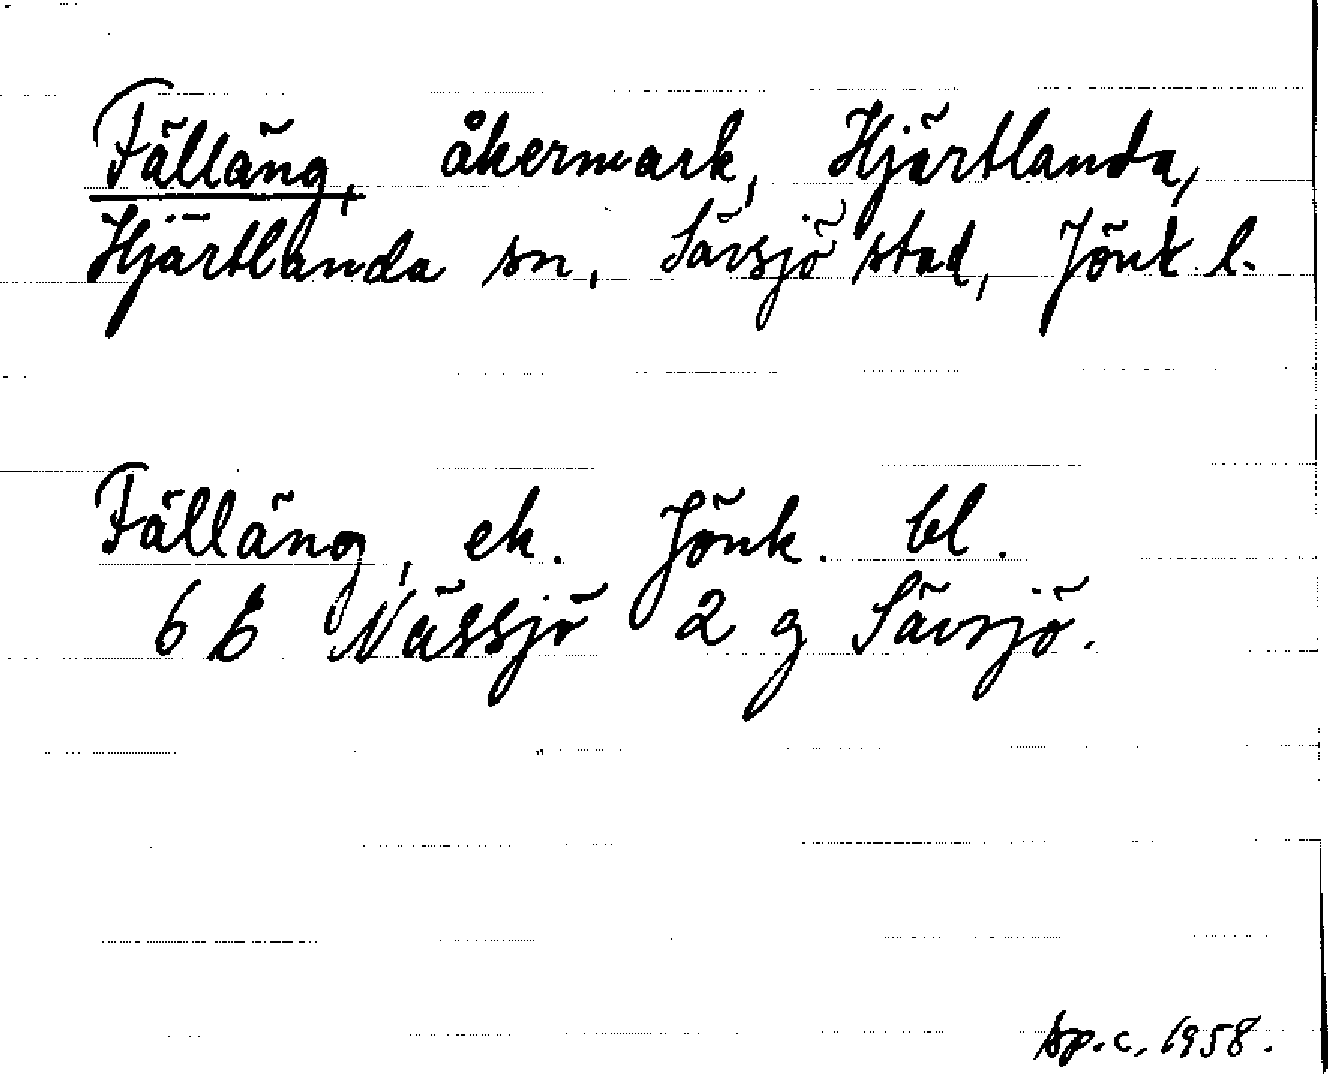 Fälläng, åkermark, Hjärtlanda,
Hjärtlanda sn, Sävsjö stad, Jönk. l.
Fälläng, ek. Jönk. bl.
6 E Nässjö 2 g Sävsjö.
sp.c. 1958.